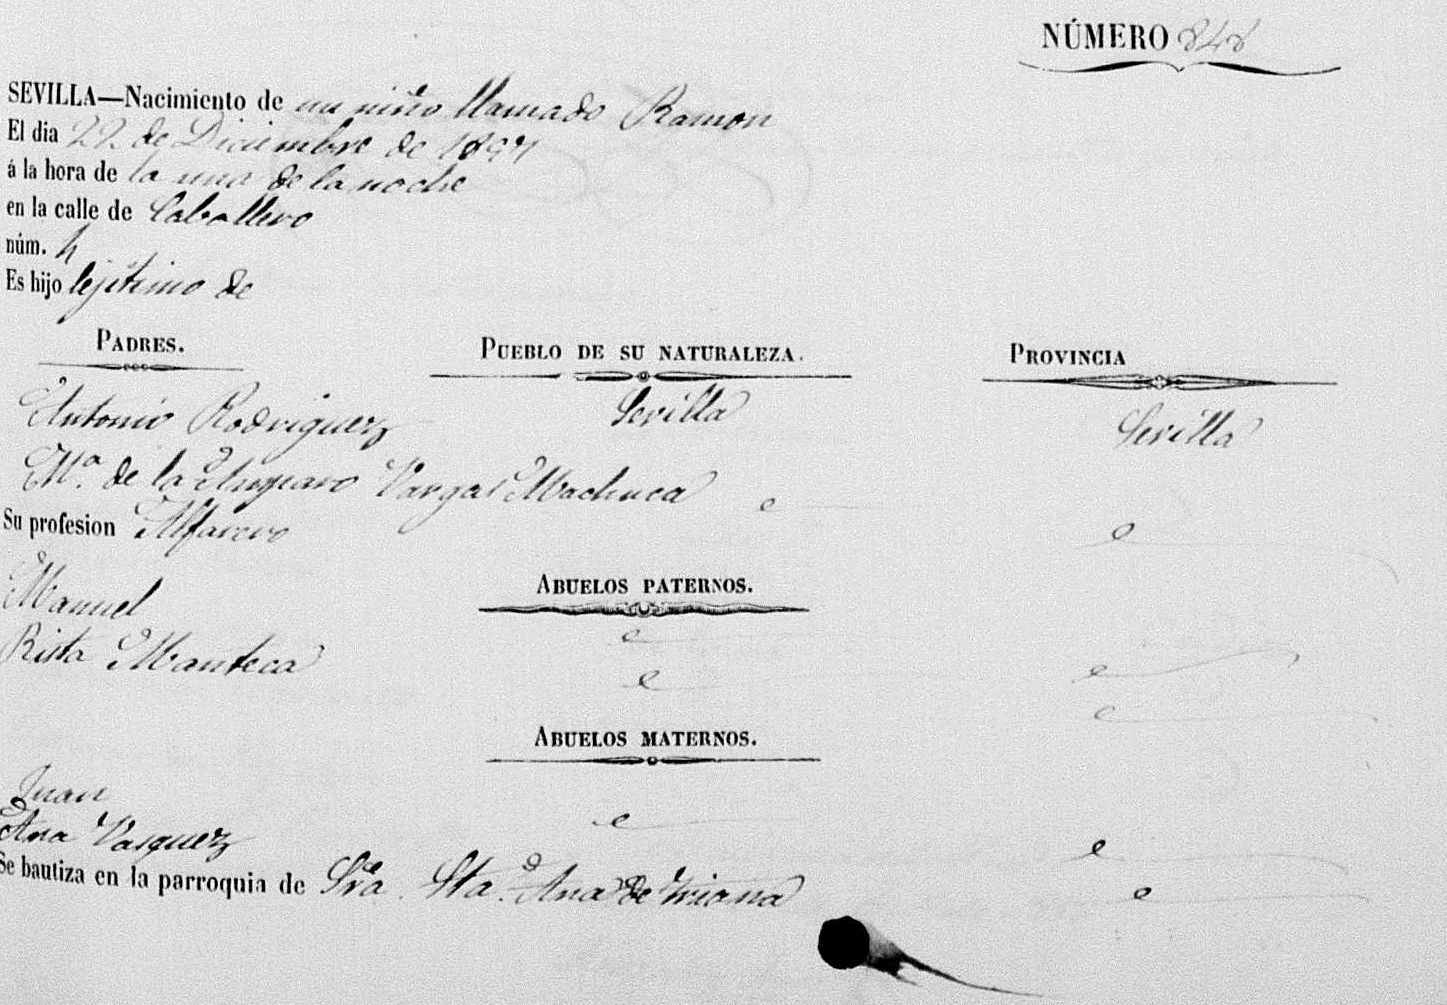 NÚMERO 848
SEVILLA—Nacimiento de un niño llamado Ramon
El dia 22 de Diciembre de 1897
á la hora de la una de la noche
en la calle de Caballero
núm. 4
Es hijo lejitimo de
PADRES. PUEBLO DE SU NATURALEZA. PROVINCIA
Antonio Rodriguez Sevilla Sevilla
Mª. de la Amparo Vargas Machuca
Su profesion Alfarero
ABUELOS PATERNOS.
Manuel
Rista Manteca
ABUELOS MATERNOS.
Juan
Ana Vasquez
Se bautiza en la parroquia de Sra. Sta. Ana de Triana